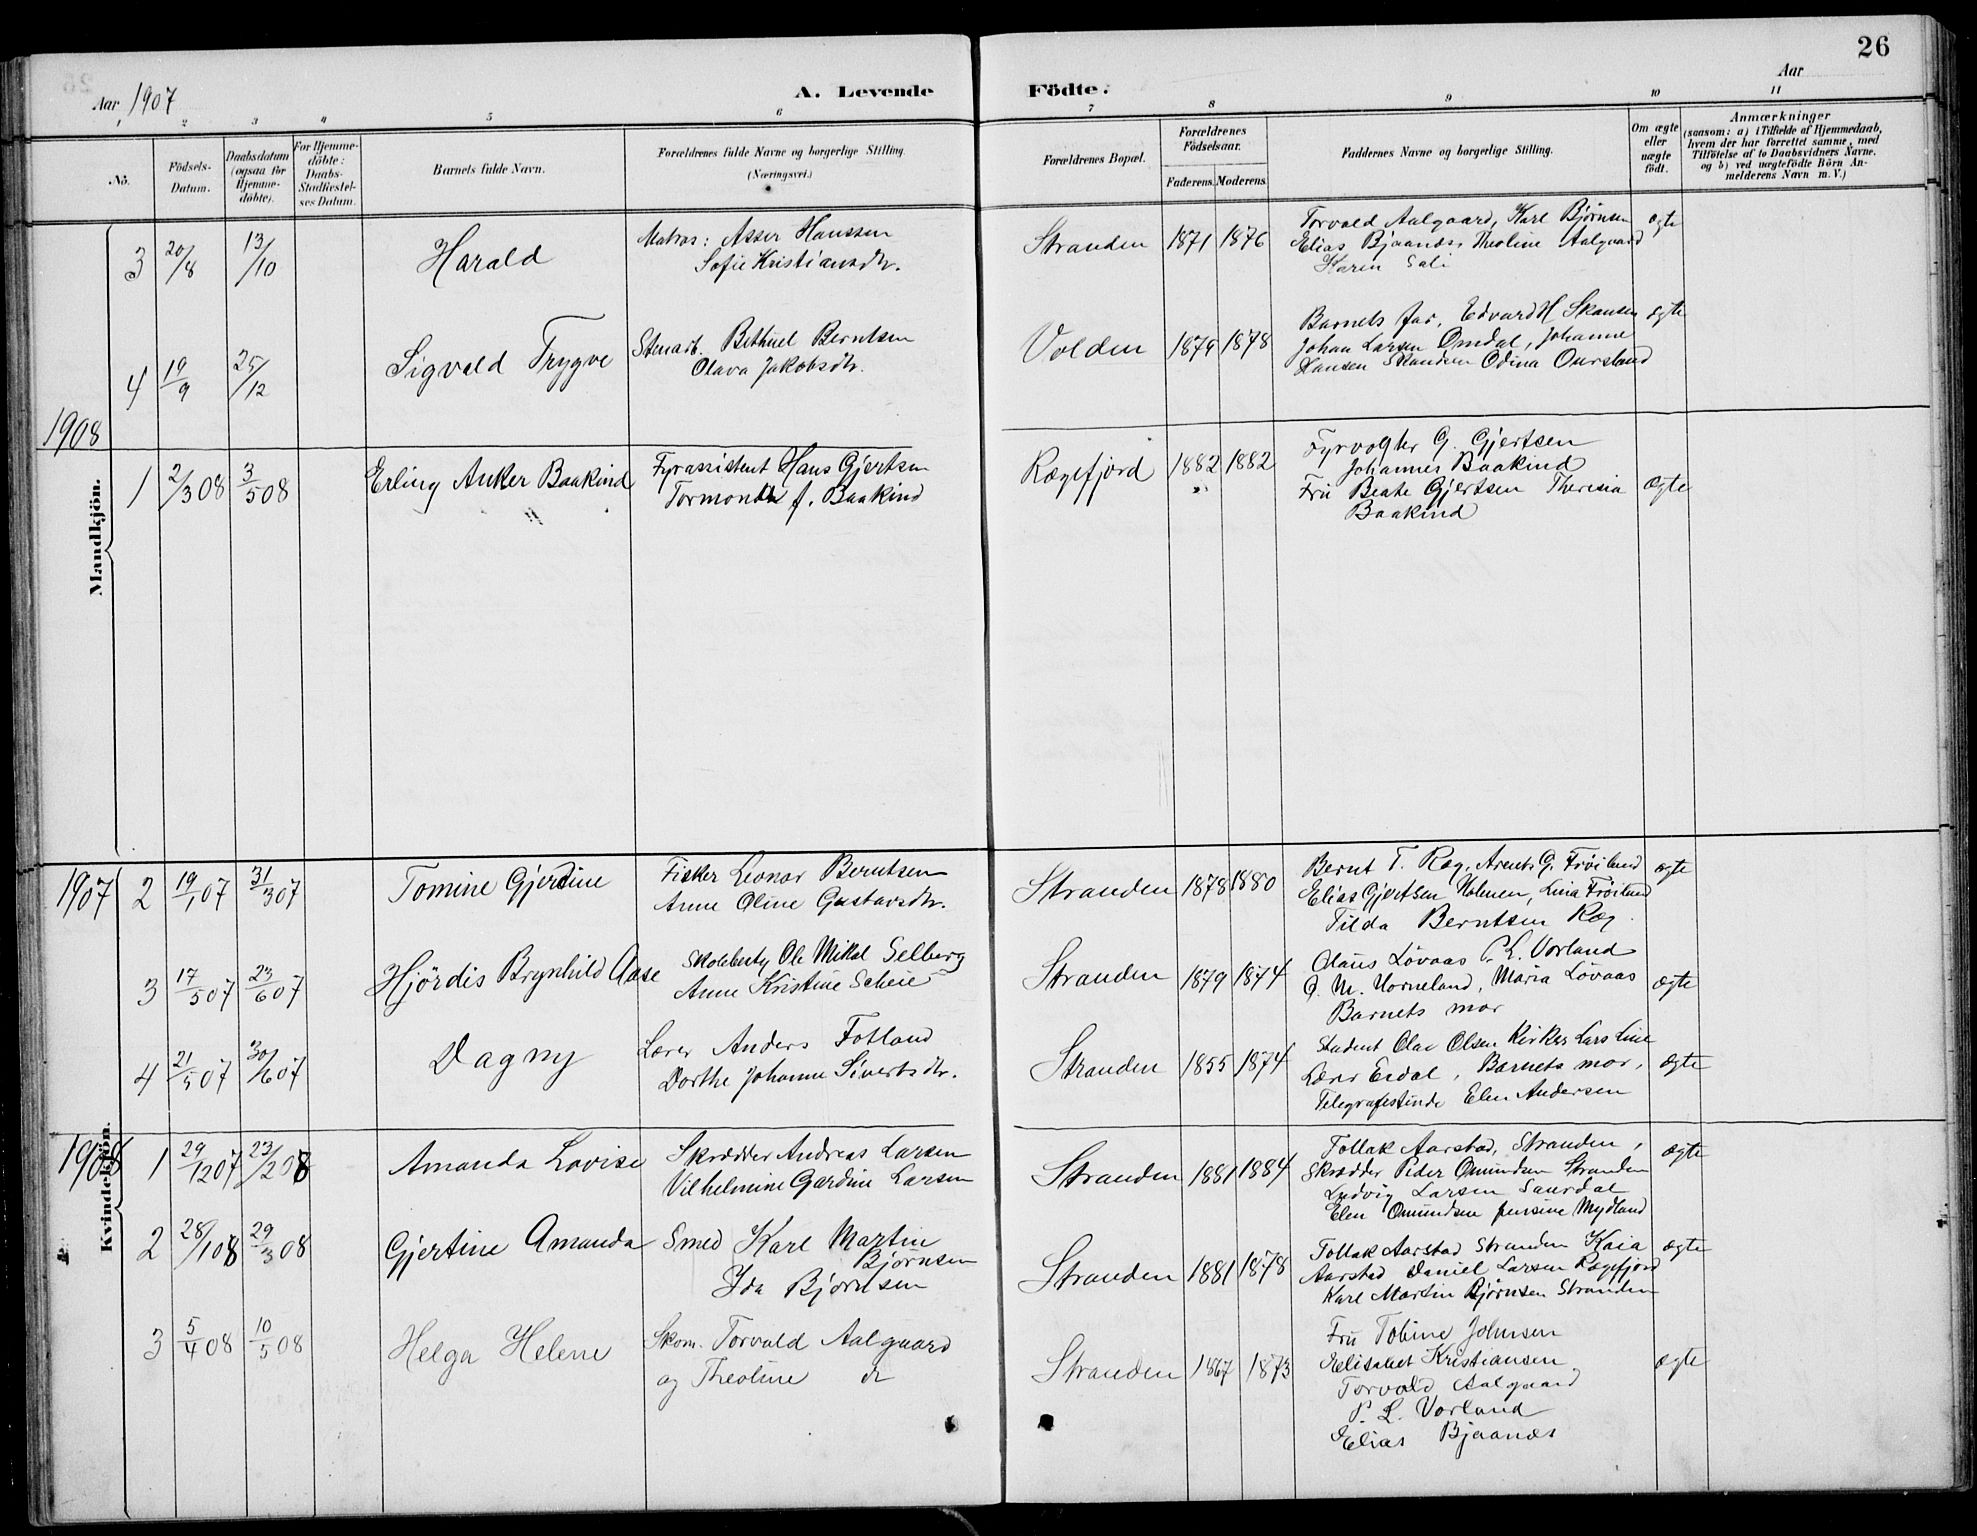 26
Aar 1907
A. Levende
Födte.
Aar
1 2 3 4 5 6 7 8 9 10 11
No.
Födsels-Datum.
Daabsdatum (ogsaa for Hjemme-döbte).
For Hjemme-döbte: Daabs-Stadfæstel-ses Datum.
Barnets fulde Navn.
Forældrenes fulde Navne og borgerlige Stilling. (Næringsvei.)
Forældrenes Bopæl.
Forældrenes Födselsaar.
Faderens. Moderens.
Faddernes Navne og borgerlige Stilling.
Om ægte eller uægte födt.
Anmærkninger
(saasom: a) i Tilfælde af Hjemmedaab,
hvem der har forrettet samme, med
Tilföielse af to Daabsvidners Navne.
og b) ved uægtefödte Börn An-
melderens Navn m. V.)
Mandkjön.
3 20/8 13/10 Harald
Matros: Asser Hanssen
Sofie Kristiansdtr.
Stranden 1871 1876
Torvald Aalgaard, Karl Bjørnsen
Elias Bjaanæs, Theoline Aalgaard
Karen Sali
ægte
4 19/9 25/12 Sigvald Trygve
Stenarb. Bethuel Berntsen
Olava Jakobsdtr.
Volden 1879 1878
Barnets far, Edvard H Skansen
Johan Larsen Omdal, Johanne
Hansen Skandsen Odina Oursland
ægte
1908
1 2/3 08 3/5 08 Erling Anker Baakind
Fyrassistent Hans Gjertsen
Tormonda f. Baakind
Rægefjord 1882 1882
Fyrvogter G. Gjertsen
Johannes Baakind
Fru Beate Gjertsen Theresia
Baakind
ægte
Kvindekjön.
1907
2 19/1 07 31/3 07 Tomine Gjerdine
Fisker Leonar Berntsen
Anne Oline Gustavsdtr.
Stranden 1878 1880
Bernt T. Ræg, Arent G. Frøilund
Elias Gjertsen Holmen, Lina Frøilund
Tilda Berntsen Ræg.
ægte
3 17/5 07 23/6 07 Hjördis Brynhild Aase
Skolebesty Ole Mikal Selberg
Anne Kristine Scheie
Stranden 1879 1874
Claus Løvaas P. L. Vorland
O. M. Horneland, Maria Lövaas
Barnets mor
ægte
4 21/5 07 30/6 07 Dagny
Lærer Anders Fotland
Dorthe Johanne Sivertsdtr.
Stranden 1855 1874
Student Olav Olsen Kirkes. Lars Line
Lærer Eidal, Barnets mor,
Telegrafistinde Elen Andersen
ægte
1908
1 29/12 07 23/2 08 Amanda Lovise
Skrædder Andreas Larsen
Vilhelmine Gardine Larsen
Stranden 1881 1884
Tollak Aarstad, Stranden,
Skrædder Peder Omundsen Stranden
Ludvig Larsen Saurdal
Elen Omundsen Jensine Mydland
ægte
2 28/1 08 29/3 08 Gjertine Amanda
Smed Karl Martin
Bjørnsen
Ida Bjørnsen
Stranden 1881 1878
Tollak Aarstad Stranden Kaia
Aarstad Daniel Larsen Rægefjord
Karl Martin Bjørnsen Stranden
ægte
3 5/4 08 10/5 08 Helga Helene
Skom. Torvald Aalgaard
og Theoline do
Stranden 1867 1873
Fru Tobine Johnsen
Elisabet Kristiansen
Torvald Aalgaard
P. L. Vorland
Elias Bjaanæs
ægte